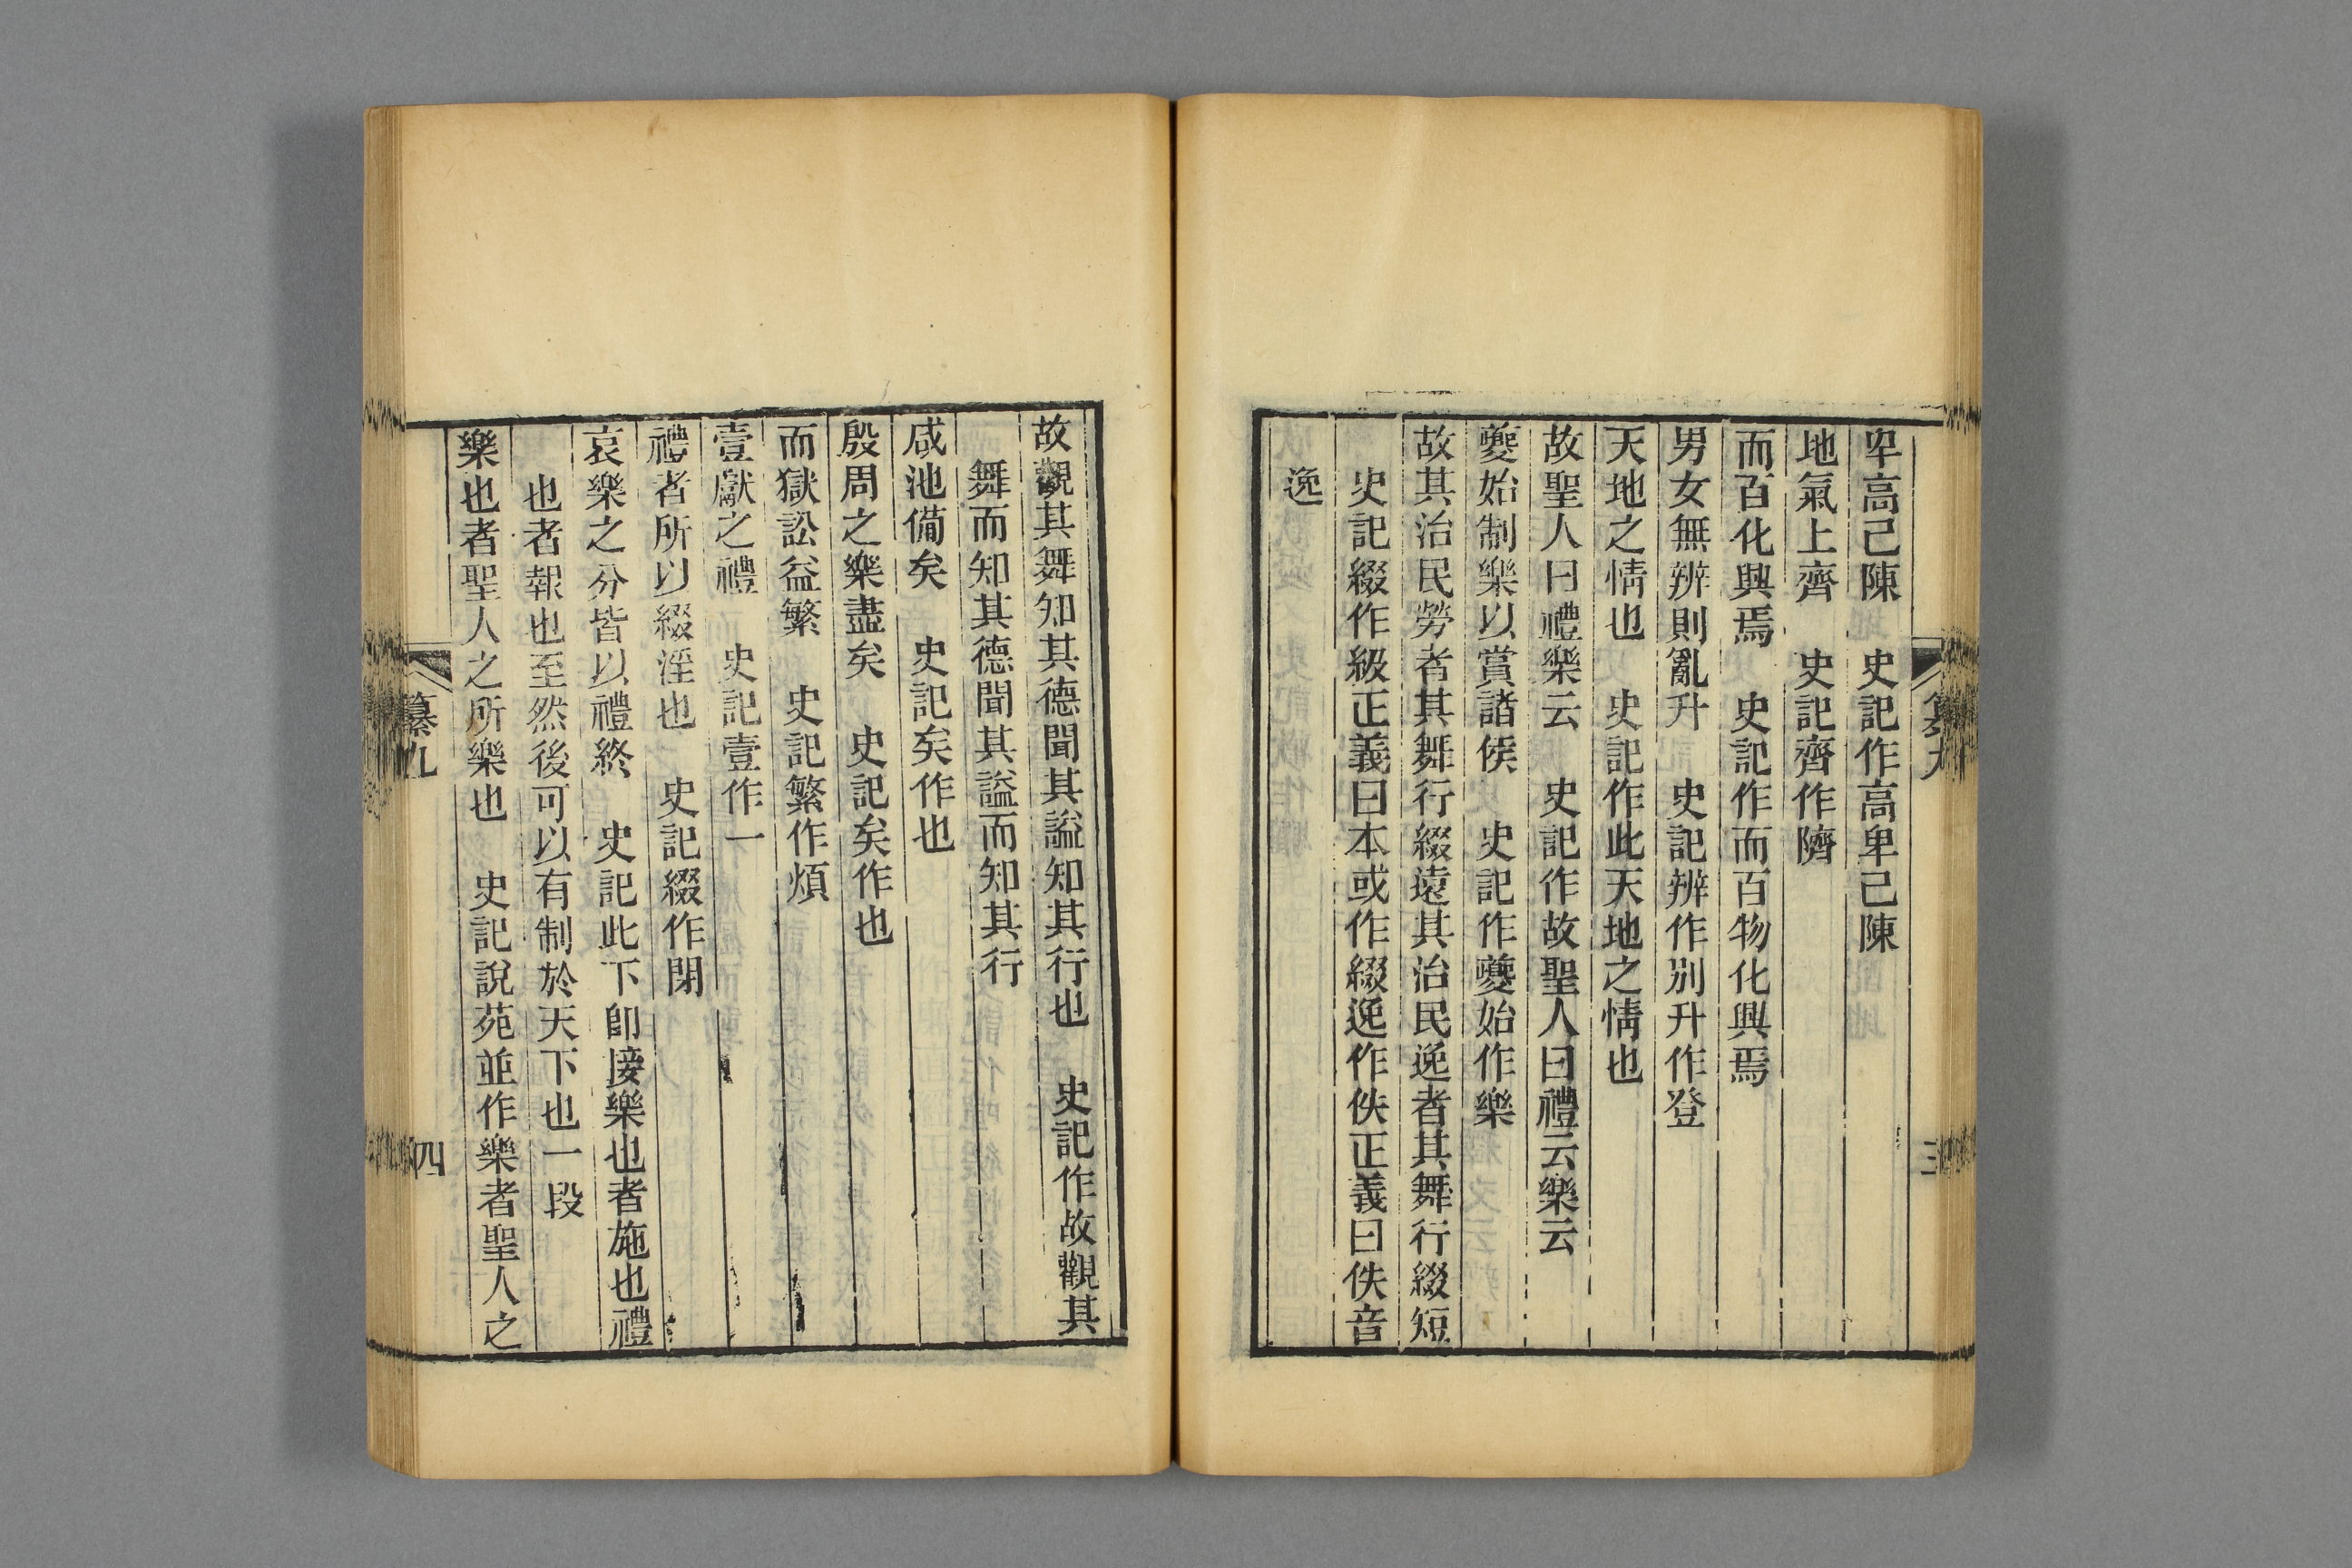 卑高己陳　史記作高卑己陳
地氣上齊　史記齊作隮
而百化興焉　史記作而百物化興焉
男女無辨則亂升　史記辨作別升作登
天地之情也　史記作此天地之情也
故聖人曰禮樂云　史記作故聖人曰禮云樂云
夔始制樂以賞諸侯　史記作夔始作樂
故其治民勞者其舞行綴遠其治民逸者其舞行綴短
史記綴作級正義曰本或作綴逸作佚正義曰佚音
逸
故觀其舞知其德聞其謚知其行也　史記作故觀其
舞而知其德聞其謚而知其行
咸池備矣　史記矣作也
殷周之樂盡矣　史記矣作也
而獄訟益繁　史記繁作煩
壹獻之禮　史記壹作一
禮者所以綴淫也　史記綴作閉
哀樂之分皆以禮終　史記此下卽接樂也者施也禮
也者報也至然後可以有制於天下也一段
樂也者聖人之所樂也　史記說苑並作樂者聖人之
纂九
四